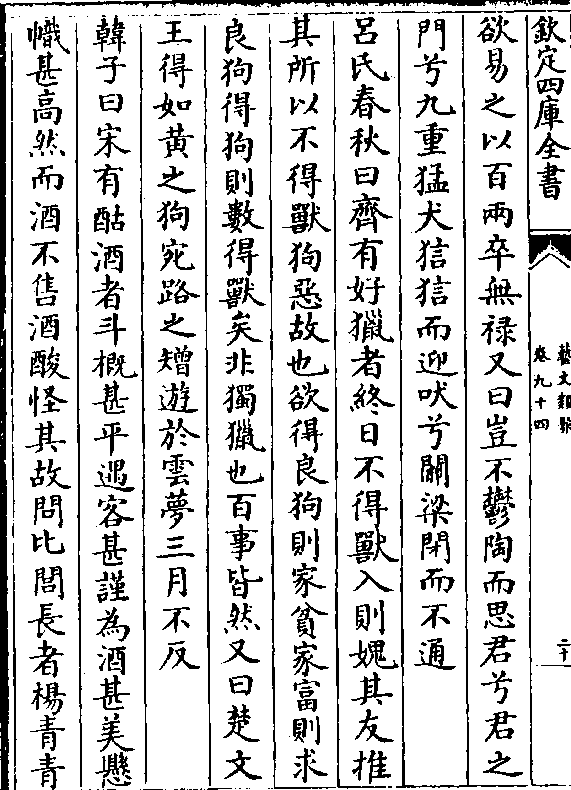 欽定四庫全書
藝文類聚
卷九十四
二十
欲易之以百兩卒無禄又曰豈不鬱陶而思君兮君之
門兮九重猛犬狺狺而迎吠兮關梁閉而不通
吕氏春秋曰齊有好獵者終日不得獸入則媿其友推
其所以不得獸狗惡故也欲得良狗則家貧家富則求
良狗得狗則數得獸矣非獨獵也百事皆然又曰楚文
王得如黄之狗宛路之矰遊於雲夢三月不反
韓子曰宋有酤酒者斗概甚平遇客甚謹為酒甚美懸
幟甚高然而酒不售酒酸怪其故問比閭長者楊青青